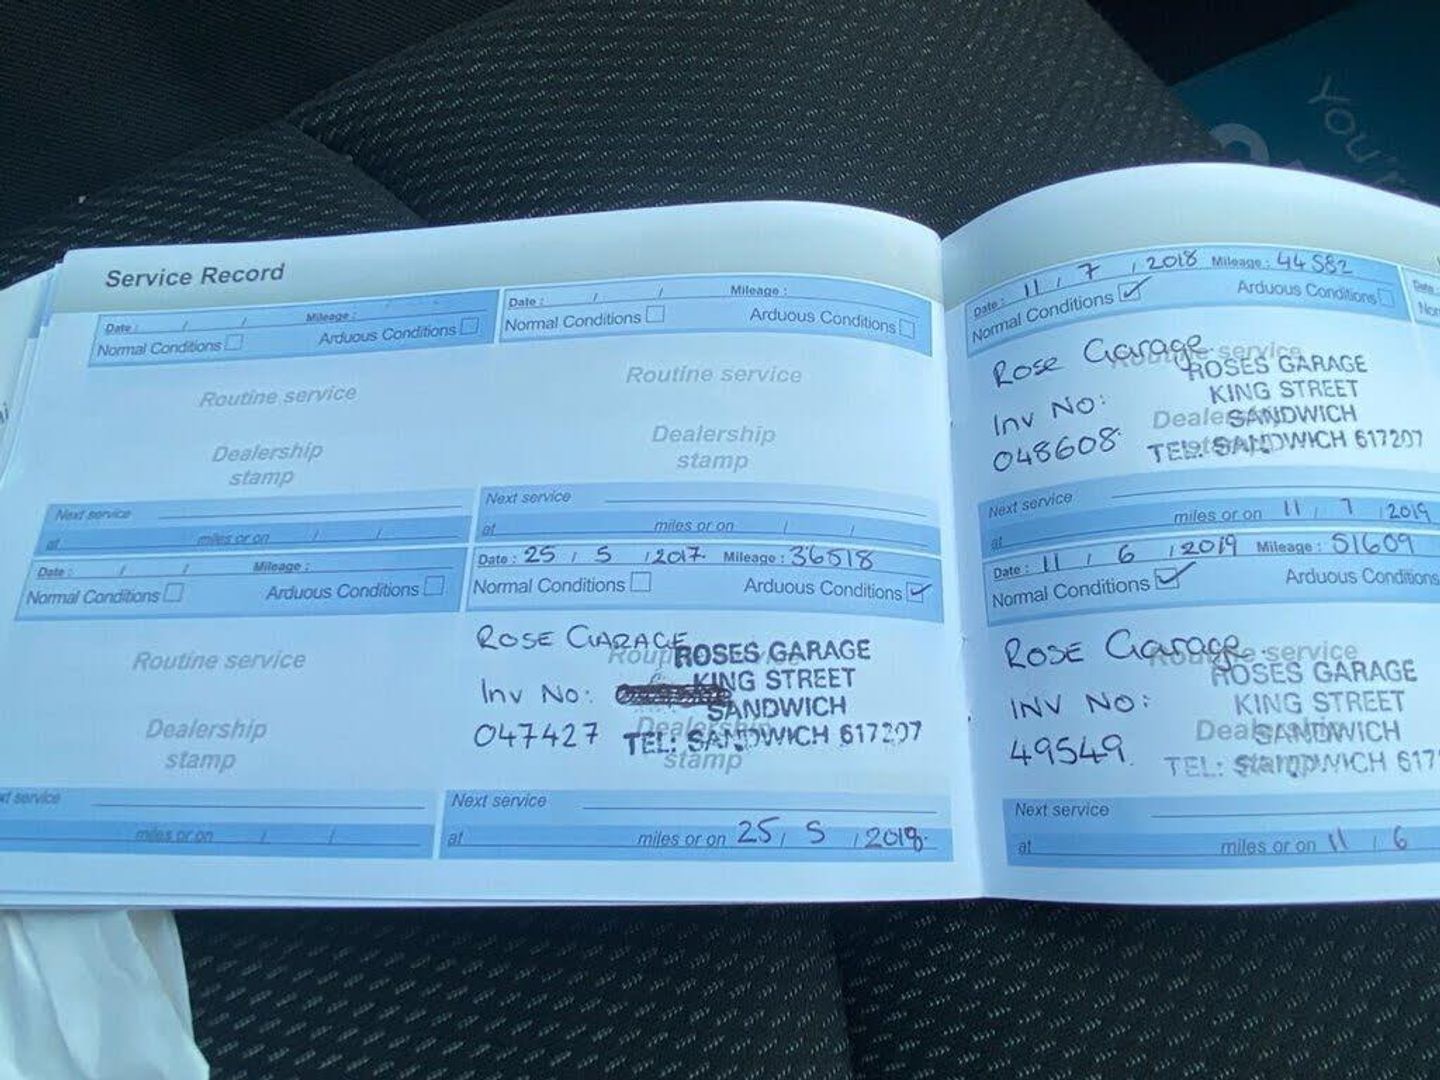 You'r
Service Record
Date : / / Mileage :
Normal Conditions Arduous Conditions
Routine service
Dealership
stamp
Next service
at miles or on / /
Date : / / Mileage :
Normal Conditions Arduous Conditions
Routine service
Dealership
stamp
Next service
at miles or on / /
Date : / / Mileage :
Normal Conditions Arduous Conditions
Routine service
Dealership
stamp
xt service
miles or on / /
Date : 25 / 5 / 2017 Mileage : 36518
Normal Conditions Arduous Conditions ✓
ROSE GARAGE
Inv No:
047427
ROSES GARAGE
KING STREET
SANDWICH
TEL: SANDWICH 617207
Dealership
stamp
Next service
at miles or on 25 / 5 / 2018.
Date : 11 / 7 / 2018 Mileage : 44582
Normal Conditions ✓ Arduous Conditions
Rose Garage
Inv No:
048608
Routine service
ROSES GARAGE
KING STREET
Dealership
SANDWICH
TEL: SANDWICH 617207
Next service
at miles or on 11 / 7 / 2019
Date : 11 / 6 / 2019 Mileage : 51609
Normal Conditions ✓ Arduous Conditions
Rose Garage.
INV NO:
49549.
Routine service
ROSES GARAGE
KING STREET
Dealership
SANDWICH
TEL: SANDWICH 617
stamp
Next service
at miles or on 11 / 6
Date :
Nor